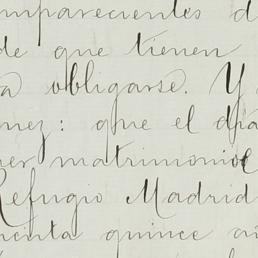 mparecientes d
de que tienen
a obligarse. Y
mez: que el dia
er matrimonio
Refugio Madrid
enta quince a